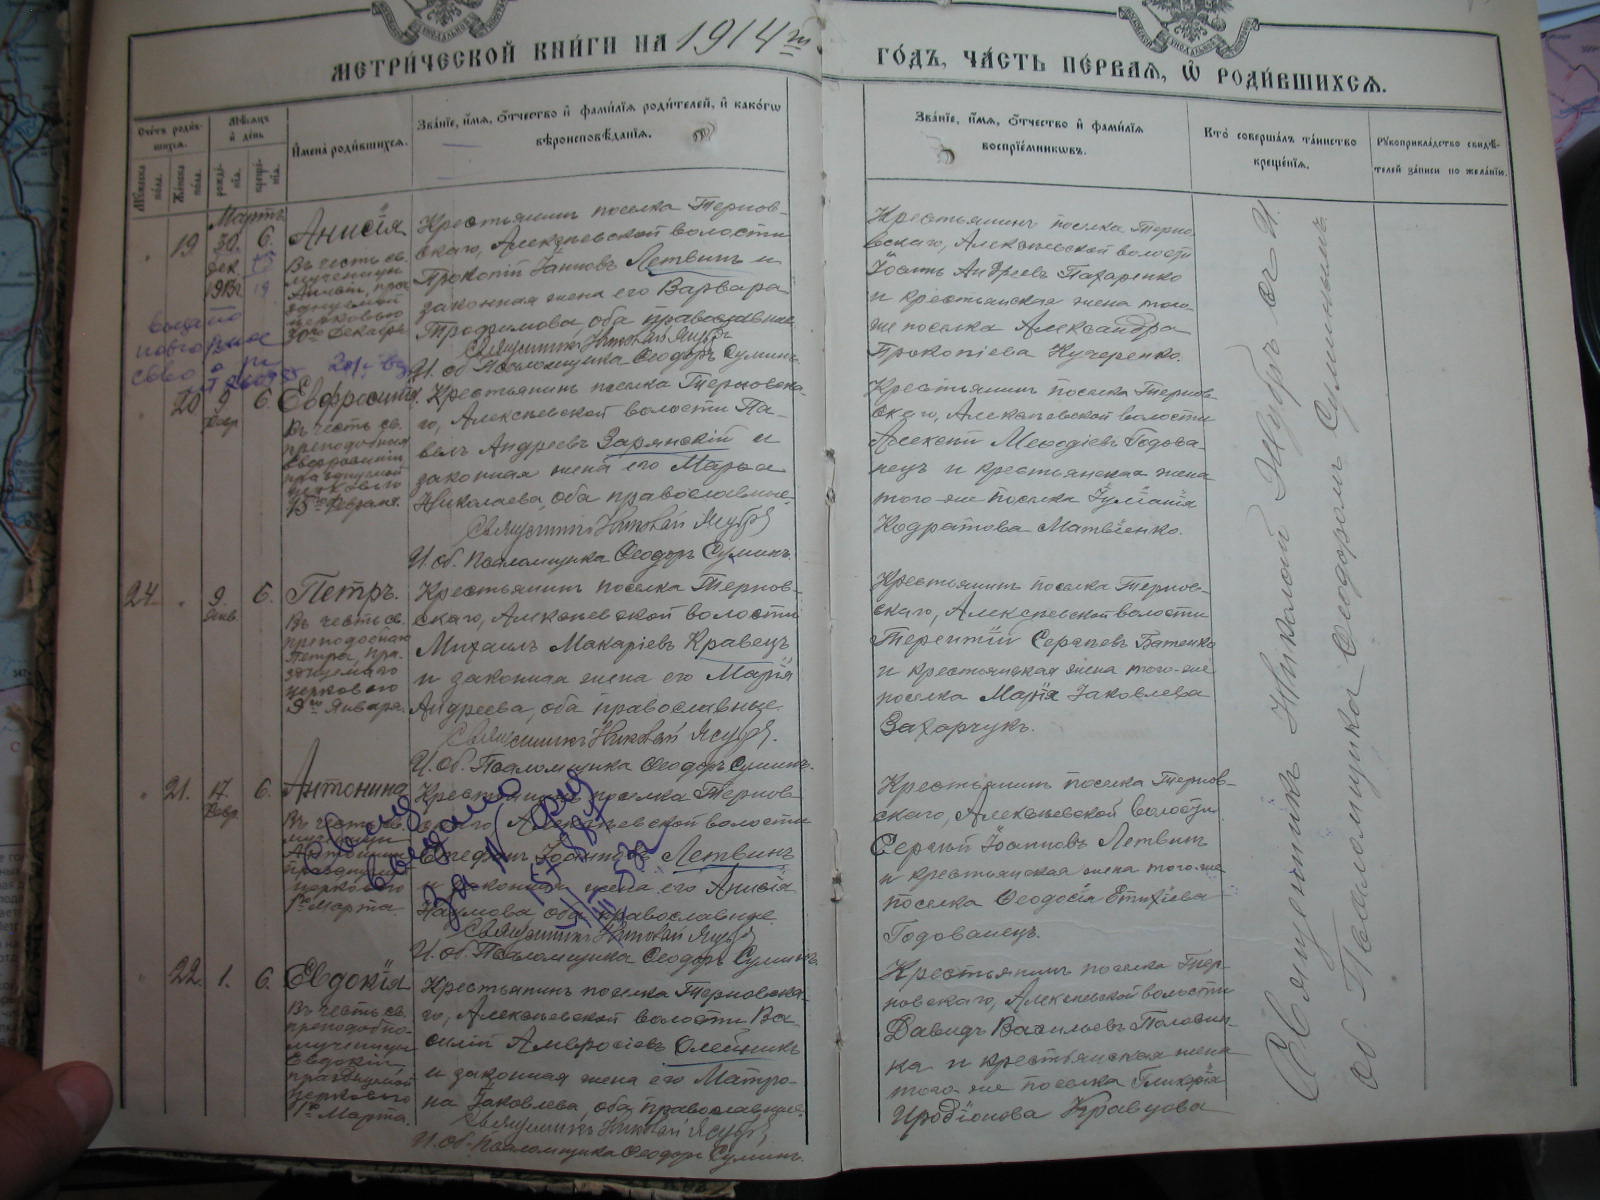 МЕТРИЧЕСКОЙ КНИГИ НА 1914 й
ГОДЪ, ЧАСТЬ ПЕРВАЯ, Ѡ РОДИВШИХСЯ.
Счетъ родив-
шихся.
Мѣсяцъ
и день
Имена родившихся.
Званіе, имя, отчество и фамилія родителей, и какогѡ
вѣроисповѣданія.
Званіе, имя, отчество и фамилія
воспріемниковъ.
Кто совершалъ таинство
крещенія.
Рукоприкладство свидѣ-
телей записи по желанію.
Мужеска
пола.
Женска
пола.
рожде-
нія.
креще-
нія.
Мартъ
19 30. 6. Анисія
Дек.
1913г.
Въ честь св.
мученицы
Анисіи, праз-
днуемой
церковью
30го Декабря
Крестьянинъ поселка Тернов-
скаго, Алексѣевской волости
Прокопій Іоанновъ Летвинъ и
законная жена его Варвара
Трофимова, оба православные.
Священникъ Николай Якубъ
И. об. Псаломщика Ѳеодоръ Сулима.
Крестьянинъ поселка Терно-
вскаго, Алексѣевской волости
Іоаннъ Андреевъ Пахаренко
и крестьянская жена того-
же поселка Александра
Прокопіева Кучеренко.
20 6. Евфросинія.
Февр.
Въ честь св.
преподобныя
Евфросиніи
празднуемой
церковью
15го Февраля.
Крестьянинъ поселка Терновска-
го, Алексѣевской волости Па-
велъ Андреевъ Зарянскій и
законная жена его Марѳа
Николаева, оба православные.
Священникъ Николай Якубъ
И. об. Псаломщика Ѳеодоръ Сулима.
Крестьянинъ поселка Тернов-
скаго, Алексѣевской волости
Алексій Меѳодіевъ Годова-
нецъ и крестьянская жена
того-же поселка Іуліанія
Кодратова Матвіенко.
24. " 9. 6. Петръ.
Янв.
Въ честь св.
преподобнаго
Петра, пра-
зднуемаго
церковью
9го Января.
Крестьянинъ поселка Тернов-
скаго, Алексѣевской волости
Михаилъ Макаріевъ Кравецъ
и законная жена его Марія
Андреева, оба православные.
Священникъ Николай Якубъ.
И. об. Псаломщика Ѳеодоръ Сулима.
Крестьянинъ поселка Тернов-
скаго, Алексѣевской волости
Терентій Сергѣевъ Батенко
и крестьянская жена того-же
поселка Марія Іаковлева
Захарчукъ.
" 21. 17. 6. Антонина
Февр.
Въ честь св.
мученицы
Антонины
празднуемой
церковью
1го Марта.
Крестьянинъ поселка Тернов-
скаго, Алексѣевской волости
Стефанъ Іоанновъ Летвинъ
и законная жена его Анисія
Наумова, оба православные
Священникъ Николай Якубъ
И. об. Псаломщика Ѳеодоръ Сулима
Крестьянинъ поселка Тернов-
скаго, Алексѣевской волости
Сергій Іоанновъ Летвинъ
и крестьянская жена того-же
поселка Ѳеодосія Евтихіева
Годованецъ.
" 22. 1. 6. Евдокія
Въ честь св.
преподобно-
мученицы
Евдокіи
празднуемой
церковью
1го Марта.
Крестьянинъ поселка Терновска-
го, Алексѣевской волости Ва-
силій Амвросіевъ Олейникъ
и законная жена его Матро-
на Іаковлева, оба православные.
Священникъ Николай Якубъ,
И. об. Псаломщика Ѳеодоръ Сулима.
Крестьянинъ поселка Тер-
новскаго, Алексѣевской волости
Давидъ Васильевъ Половин-
ка и крестьянская жена
того же поселка Гликерія
Иродіонова Кравцова
Священникъ Николай Якубъ съ И.
об. Псаломщика Ѳеодоромъ Сулимымъ